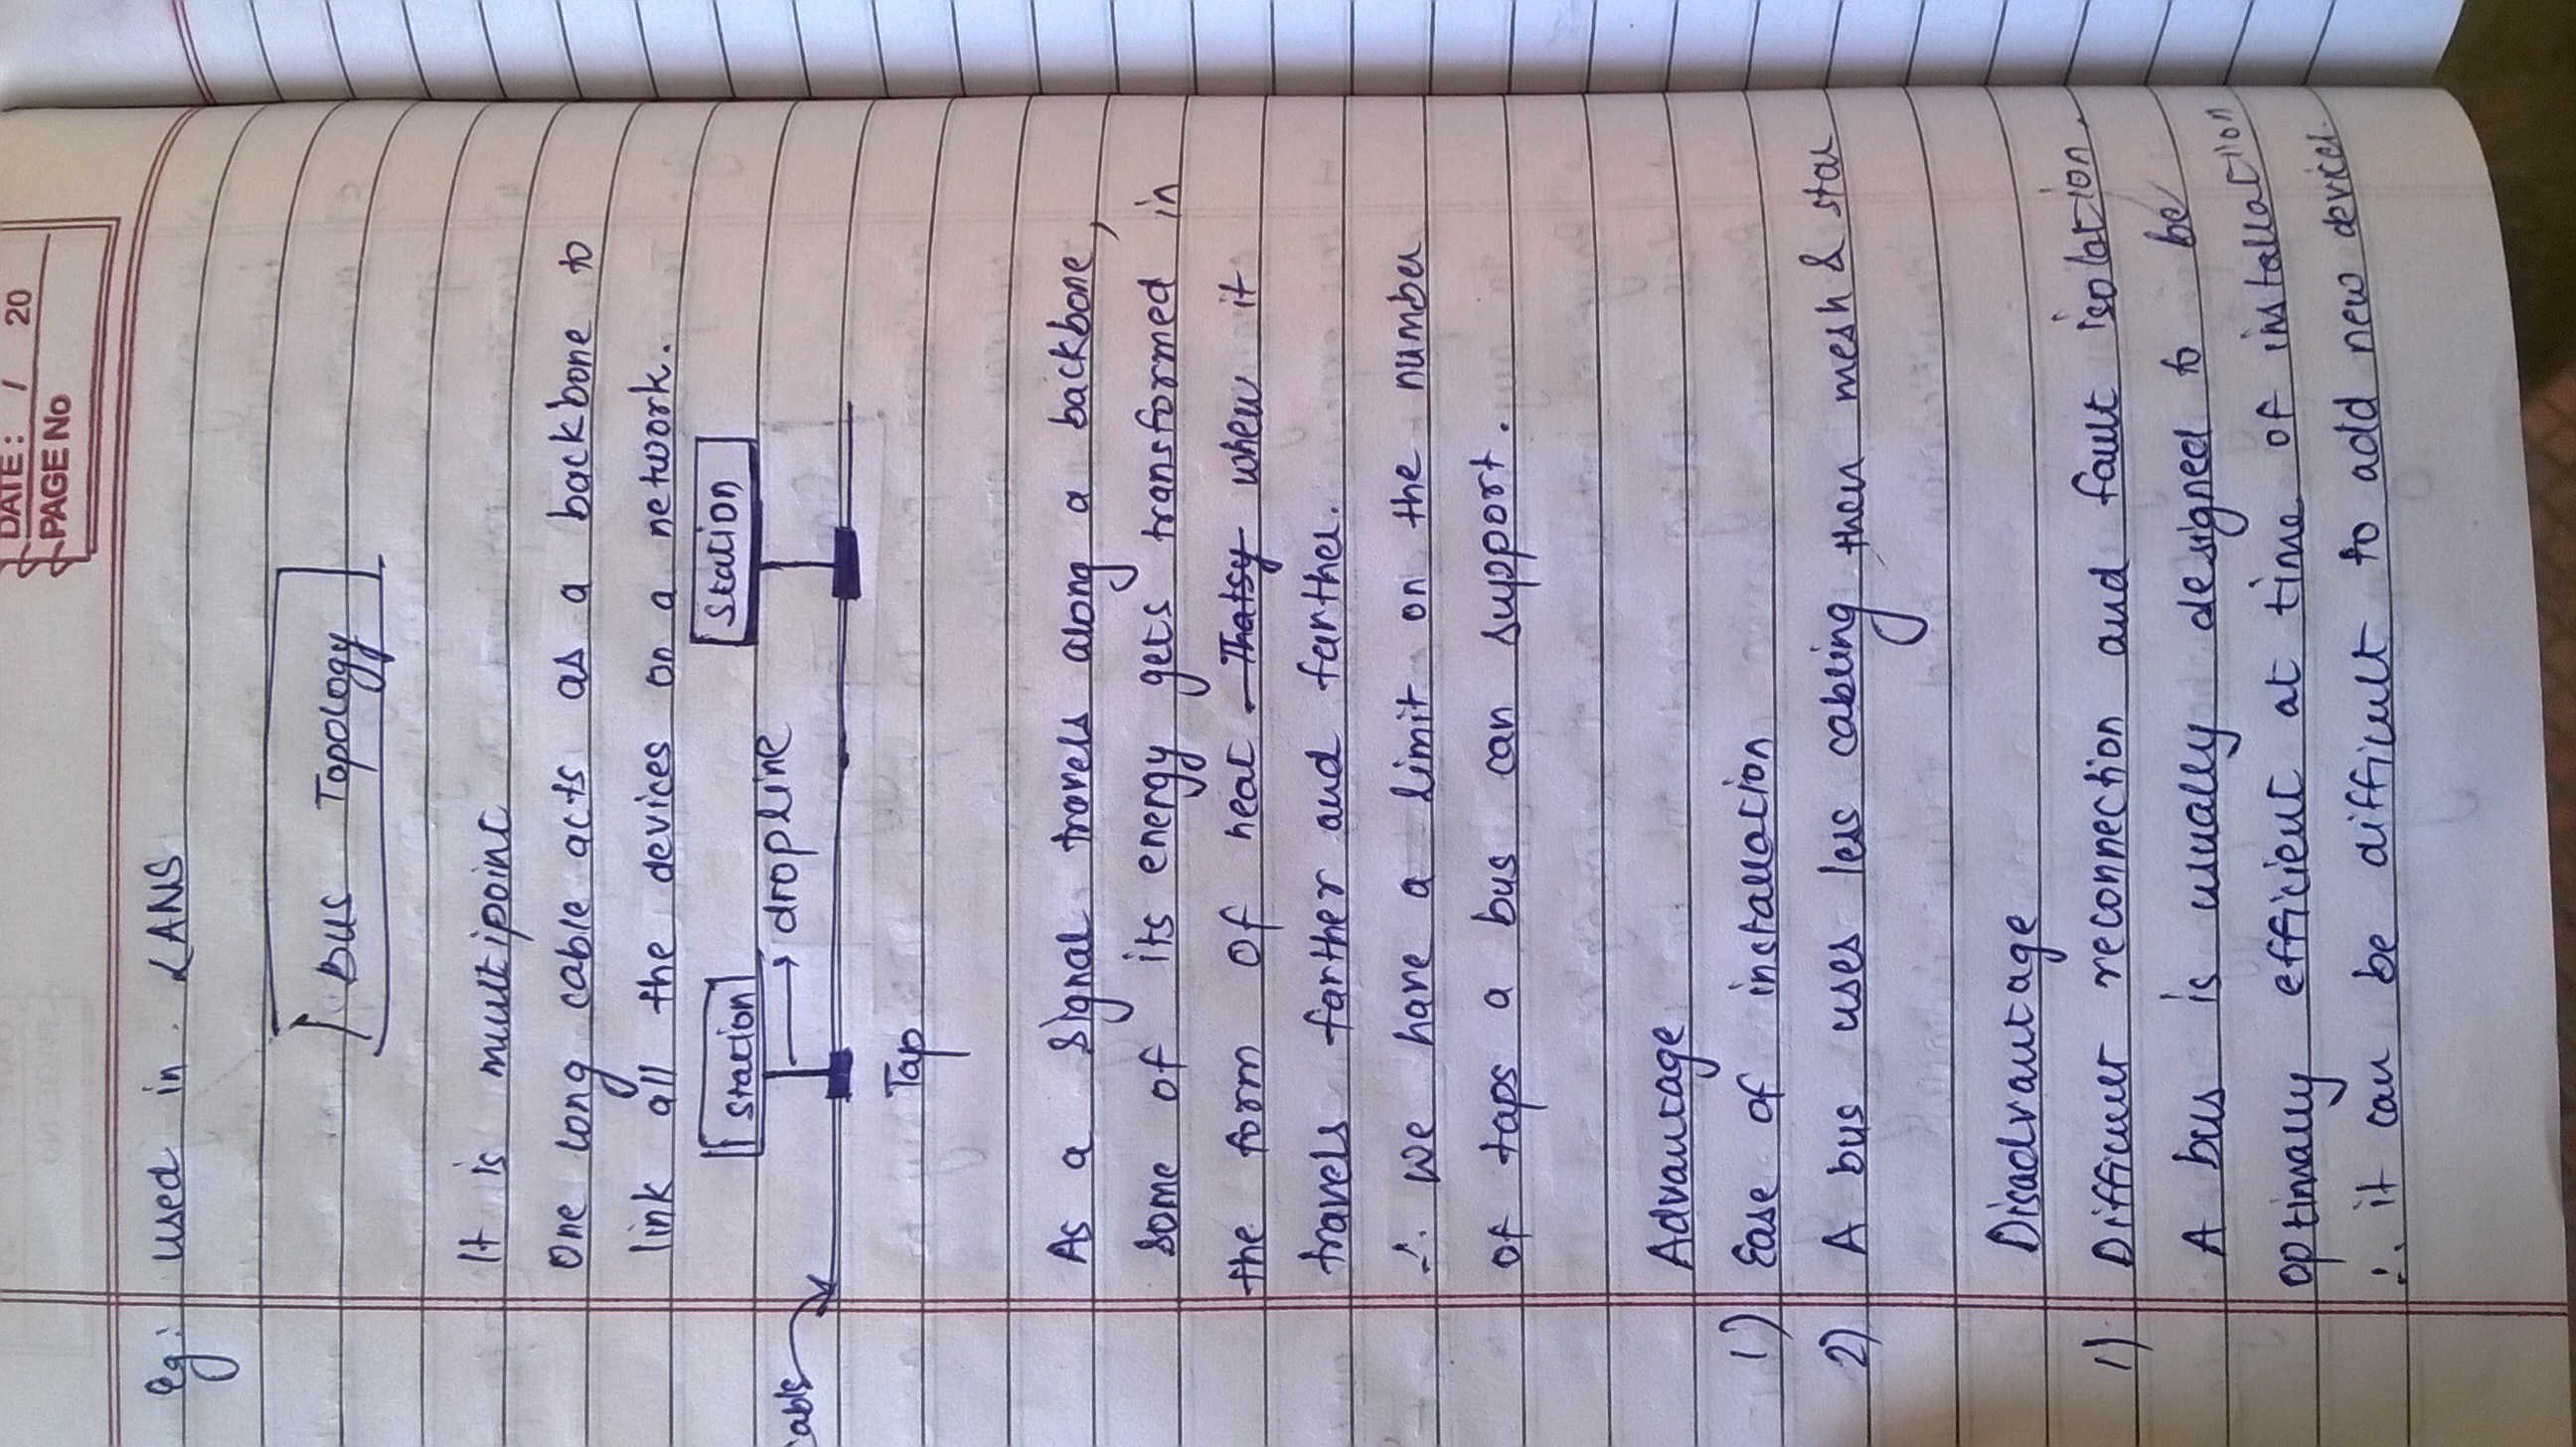 DATE: / 20
PAGE No
Eg: used in LANS
Bus Topology
It is multipoint
One long cable acts as a backbone to
link all the devices on a network.
Station Station
dropline
cable
Tap
As a signal travels along a backbone,
some of its energy gets transformed in
the form of heat Thatsy when it
travels farther and farther.
∴ We have a limit on the number
of taps a bus can support.
Advantage
1) Ease of installation
2) A bus uses less cabling then mesh & star
Disadvantage
1) Difficult reconnection and fault isolation.
A bus is usually designed to be
optimally efficient at time of installation
∴ it can be difficult to add new devices.